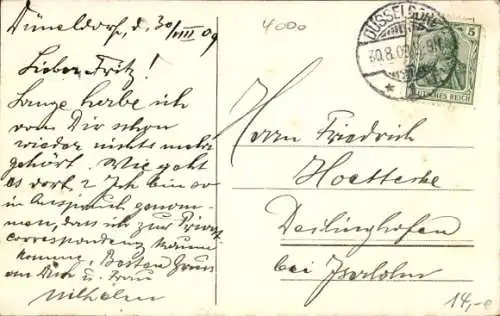 Düsseldorf, d. 30/VIII 09
Lieber Fritz!
Lange habe ich
von Dir schon
wieder nichts mehr
gehört. Wie geht
es dort? Ich bin so
in Anspruch genom-
men, dass ich zur Privat
correspondenz kaum
komme. Besten Gruss
an Dich u. Frau
Wilhelm
4000
DÜSSELDORF
30.8.09
5
DEUTSCHES REICH
Herrn Friedrich
Deilinghofen
bei Iserlohn
14,-